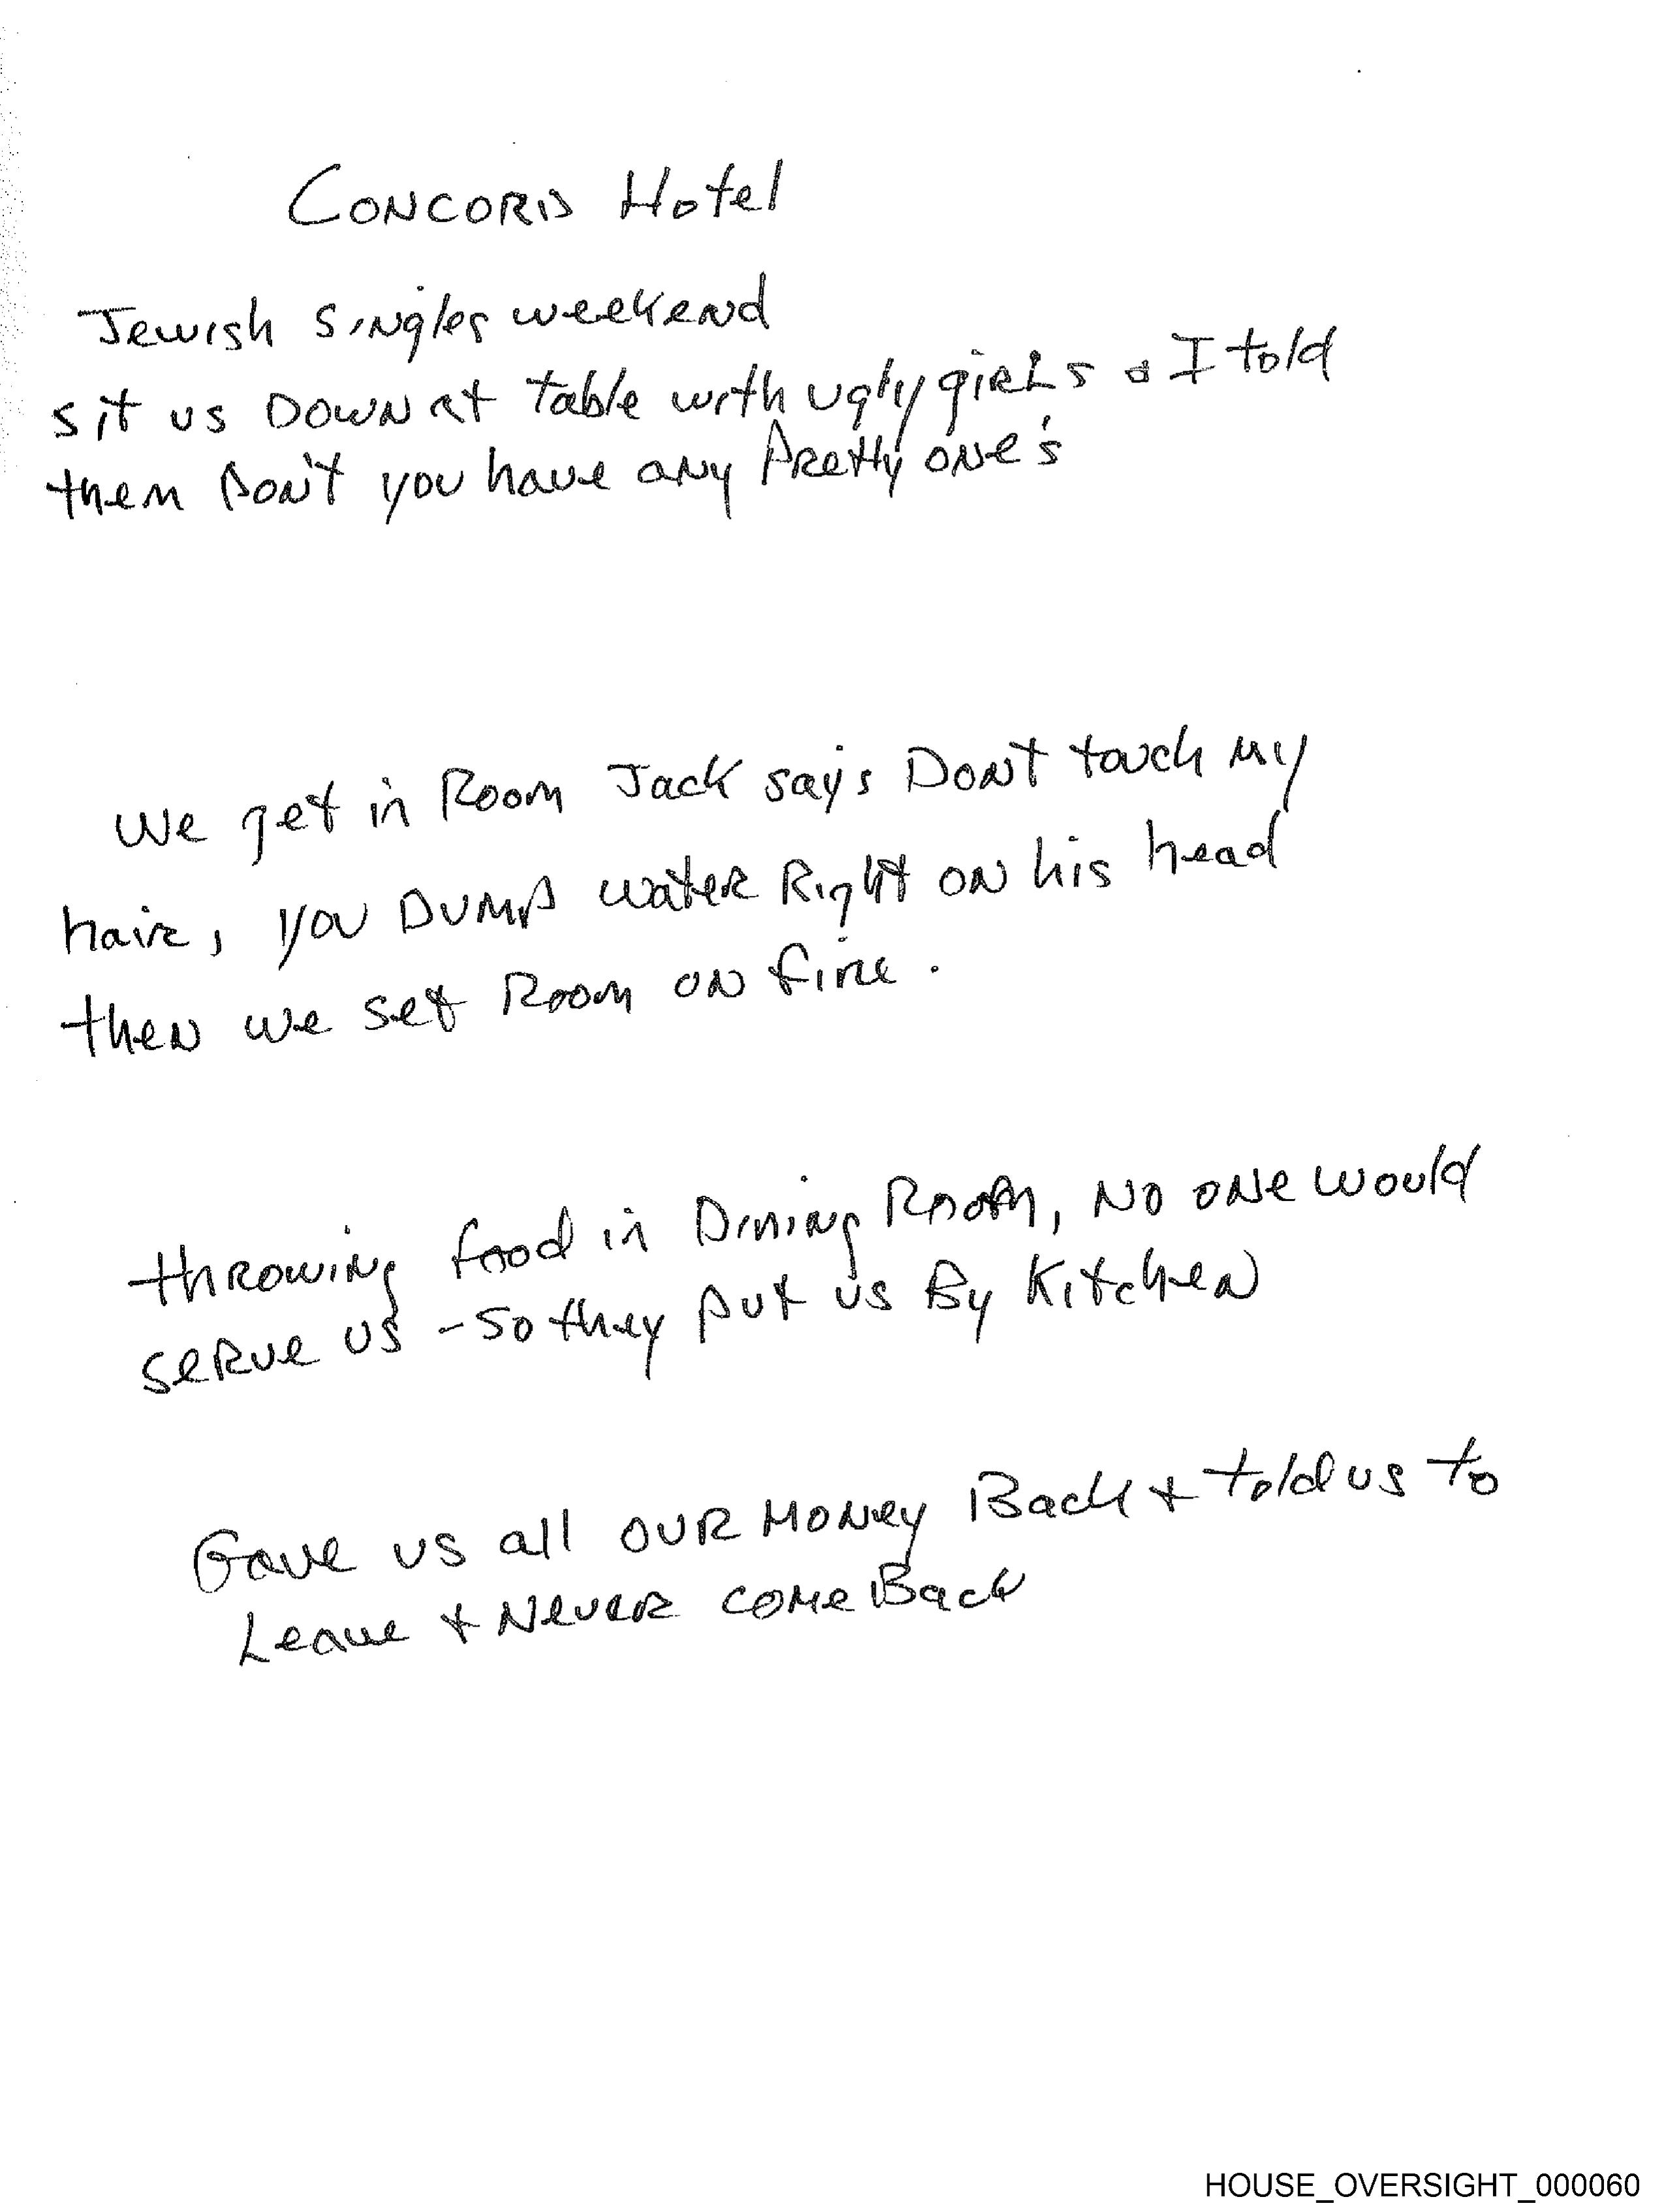 CONCORD Hotel
Jewish Singles weekend
sit us DOWN at table with ugly giRLs & I told
them Don't you have any Pretty one's
we get in Room Jack says DONT touch my
hair, you DUMP water Right ON his head
then we set Room ON fire.
throwing food in Dining Room, NO ONE would
serve us - so they put us By Kitchen
Gave us all OUR MONey Back + told us to
Leave + NeveR come Back
HOUSE_OVERSIGHT_000060